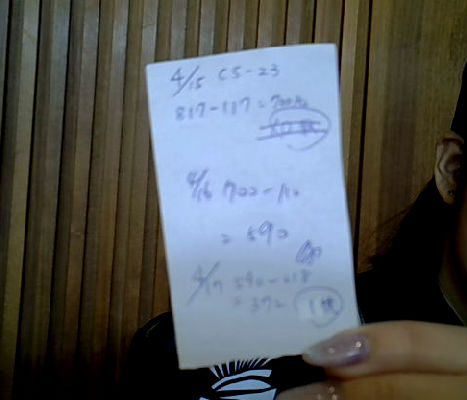 4/15 C5-23
817-117=700
4/16 700-110
=590
4/17 590-218
=372